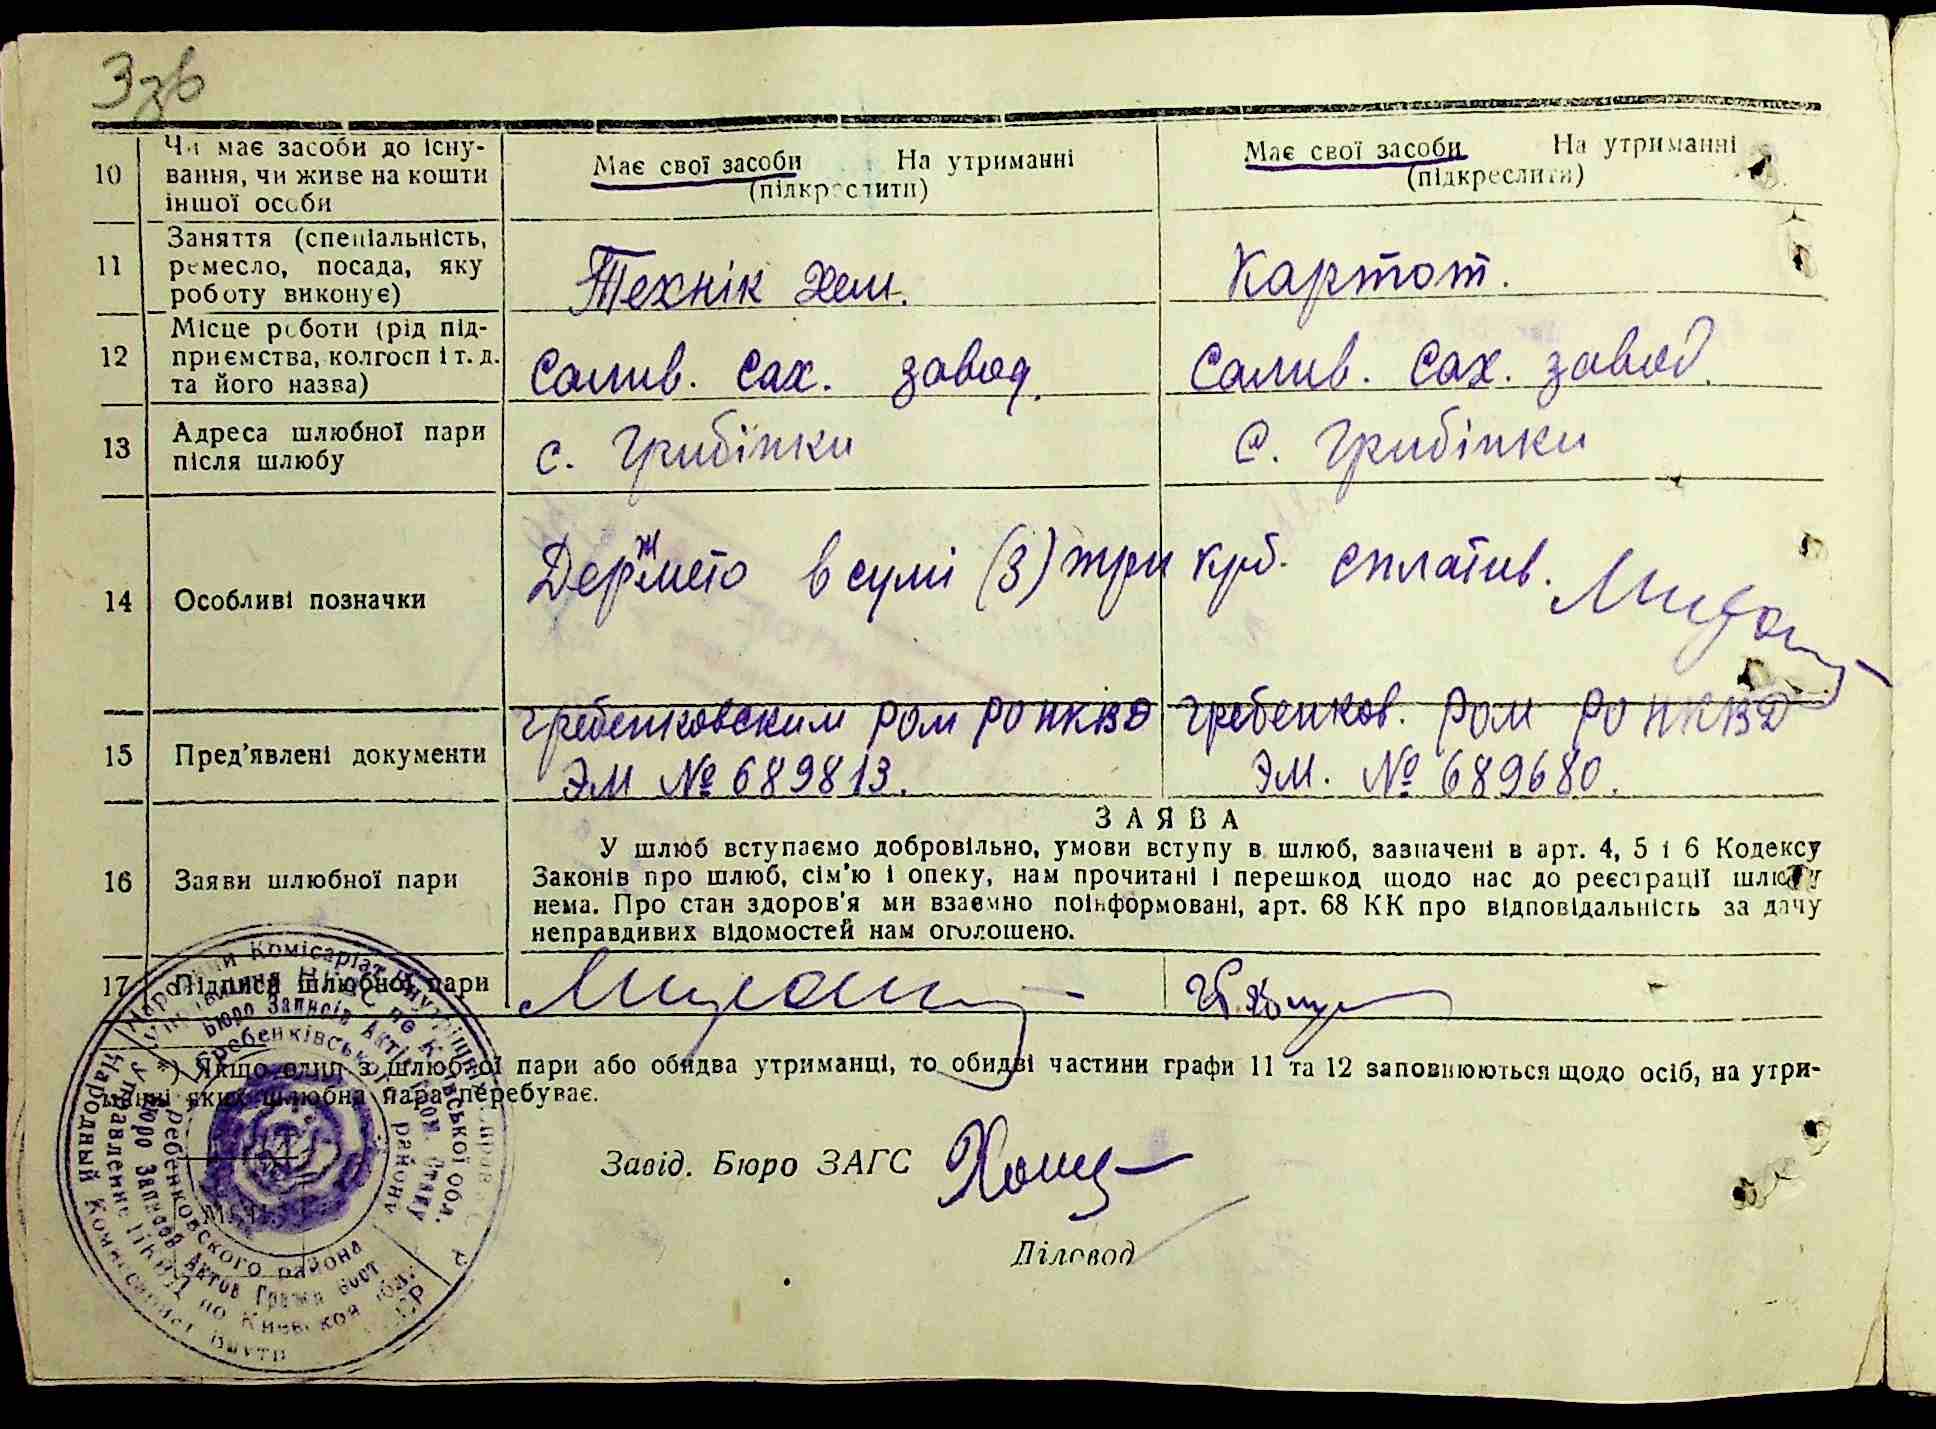 3зв
10 Чи має засоби до існу-
вання, чи живе на кошти
іншої особи
Має свої засоби На утриманні
(підкреслити)
Має свої засоби На утриманні
(підкреслити)
11 Заняття (спеціальність,
ремесло, посада, яку
роботу виконує)
Технік Хем.
Картот.
12 Місце роботи (рід під-
приємства, колгосп і т. д.
та його назва)
Салив. Сах. завод.
Салив. Сах. завод.
13 Адреса шлюбної пари
після шлюбу
с. Гребінки
с. Гребінки
14 Особливі позначки
Держмито в сумі (3) три крб. сплатив.
15 Пред'явлені документи
Гребенковским РОМ РО НКВД
ЭМ № 689813.
Гребенков. РОМ РО НКВД
ЭМ. № 689680.
16 Заяви шлюбної пари
ЗАЯВА
У шлюб вступаємо добровільно, умови вступу в шлюб, зазначені в арт. 4, 5 і 6 Кодексу
Законів про шлюб, сім'ю і опеку, нам прочитані і перешкод щодо нас до реєстрації шлюбу
нема. Про стан здоров'я ми взаємно поінформовані, арт. 68 КК про відповідальність за дачу
неправдивих відомостей нам оголошено.
17 Підписи шлюбної пари
*) Якщо один з шлюбної пари або обидва утриманці, то обидві частини графи 11 та 12 заповнюються щодо осіб, на утри-
манні яких шлюбна пара перебуває.
Завід. Бюро ЗАГС
Діловод
Народний Комісаріат Внутрішніх Справ
Управління НКВС по Київської обл.
Бюро Записів Актів Гром. Стану
Гребенківського району
Гребенковского района
Бюро Записов Актов Гражд. сост.
Управление НКВД по Киевской обл.
Народный Комиссариат Внутр